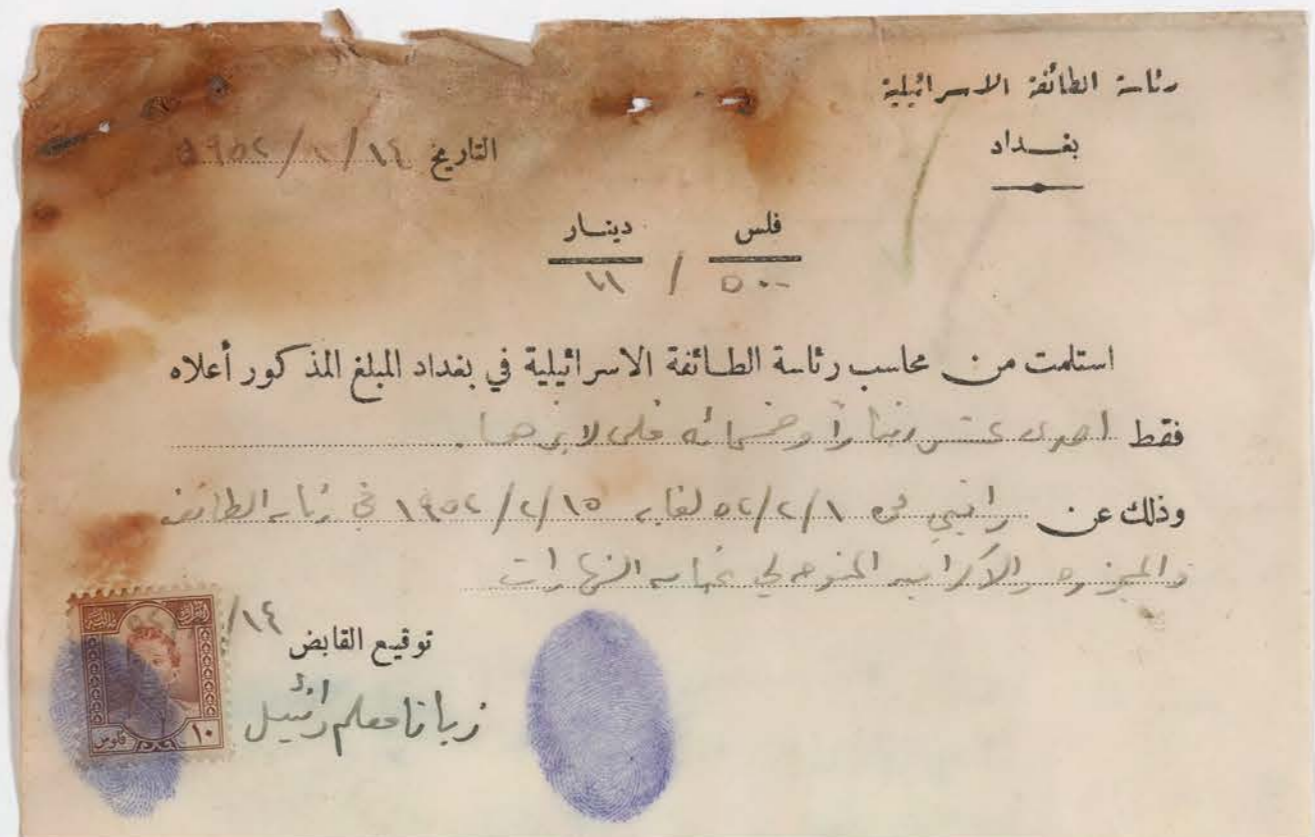 رئاسة الطائفة الاسرائيلية
بغداد
التاريخ ١٤/ /١٩٥٢
فلس دينار
٥٠٠ / ١١
استلمت من محاسب رئاسة الطائفة الاسرائيلية في بغداد المبلغ المذكور أعلاه
فقط احدى عشر ديناراً وخمسمائة فلس لا غيرها.
وذلك عن راتبي من ٥٢/٢/١ لغاية ١٩٥٢/٢/١٥ في رئاسة الطائفة
والمجزرة والاكرامية الممنوحة لي
١٤/
توقيع القابض
معلم
١٠ فلوس